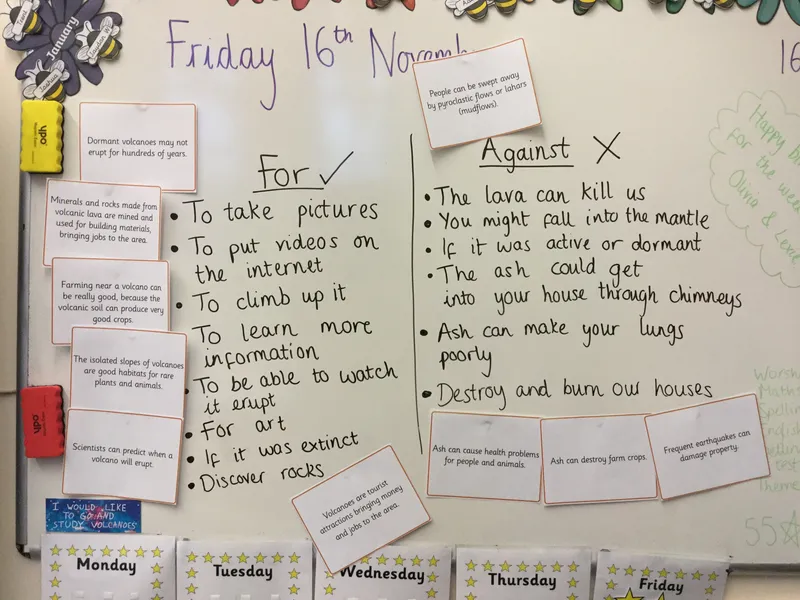 January
Friday 16th Novemb
16
People can be swept away
by pyroclastic flows or lahars
(mudflows).
Dormant volcanoes may not
erupt for hundreds of years.
Minerals and rocks made from
volcanic lava are mined and
used for building materials,
bringing jobs to the area.
Farming near a volcano can
be really good, because the
volcanic soil can produce very
good crops.
The isolated slopes of volcanoes
are good habitats for rare
plants and animals.
Scientists can predict when a
volcano will erupt.
I WOULD LIKE
TO GO AND
STUDY VOLCANOES
For ✓
• To take pictures
• To put videos on
the internet
• To climb up it
To learn more
information
• To be able to watch
it erupt
• For art
• If it was extinct
• Discover rocks
Volcanoes are tourist
attractions bringing money
and jobs to the area.
Against X
• The lava can kill us
• You might fall into the mantle
• If it was active or dormant
• The ash could get
into your house through chimneys
• Ash can make your lungs
poorly
• Destroy and burn our houses
Ash can cause health problems
for people and animals.
Ash can destroy farm crops.
Frequent earthquakes can
damage property.
Happy b
for the wee
Olivia &
Worsh
Maths
Spellin
English
test
Theme
55
ypo
ypo
Monday
Tuesday
Wednesday
Thursday
Friday